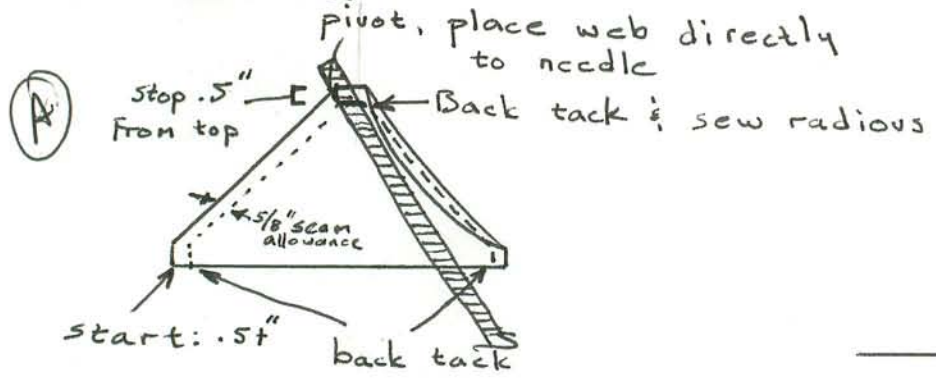 pivot, place web directly
to needle
A
stop .5"
From top
Back tack & sew radious
5/8" seam
allowance
start: .5+"
back tack